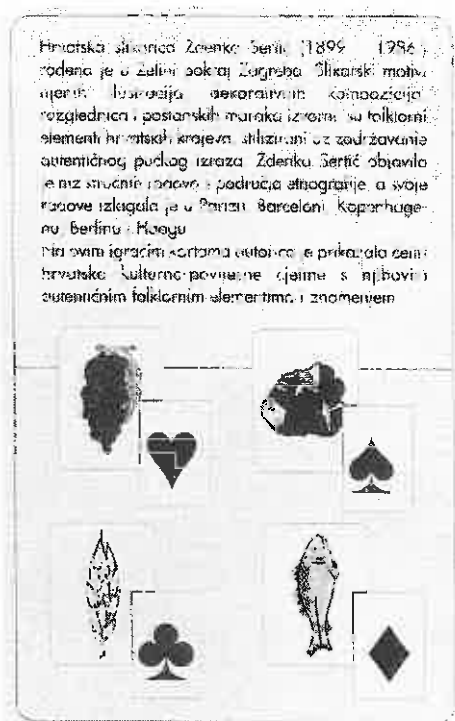 Hrvatska slikarica Zdenka Sertić (1899 1986)
rođena je u Zelini pokraj Zagreba. Slikarski motivi
njenih ilustracija dekorativnih kompozicija
razglednica i poštanskih maraka izvorni su folklorni
elementi hrvatskih krajeva stilizirani uz zadržavanje
autentičnog pučkog izraza. Zdenka Sertić objavila
je niz stručnih radova s područja etnografije, a svoje
radove izlagala je u Parizu Barceloni Kopenhage-
nu Berlinu i Haagu
Na ovim igraćim kartama autorica je prikazala
hrvatske kulturno-povijesne cjeline s njihovim
autentičnim folklornim elementima i znamenjem